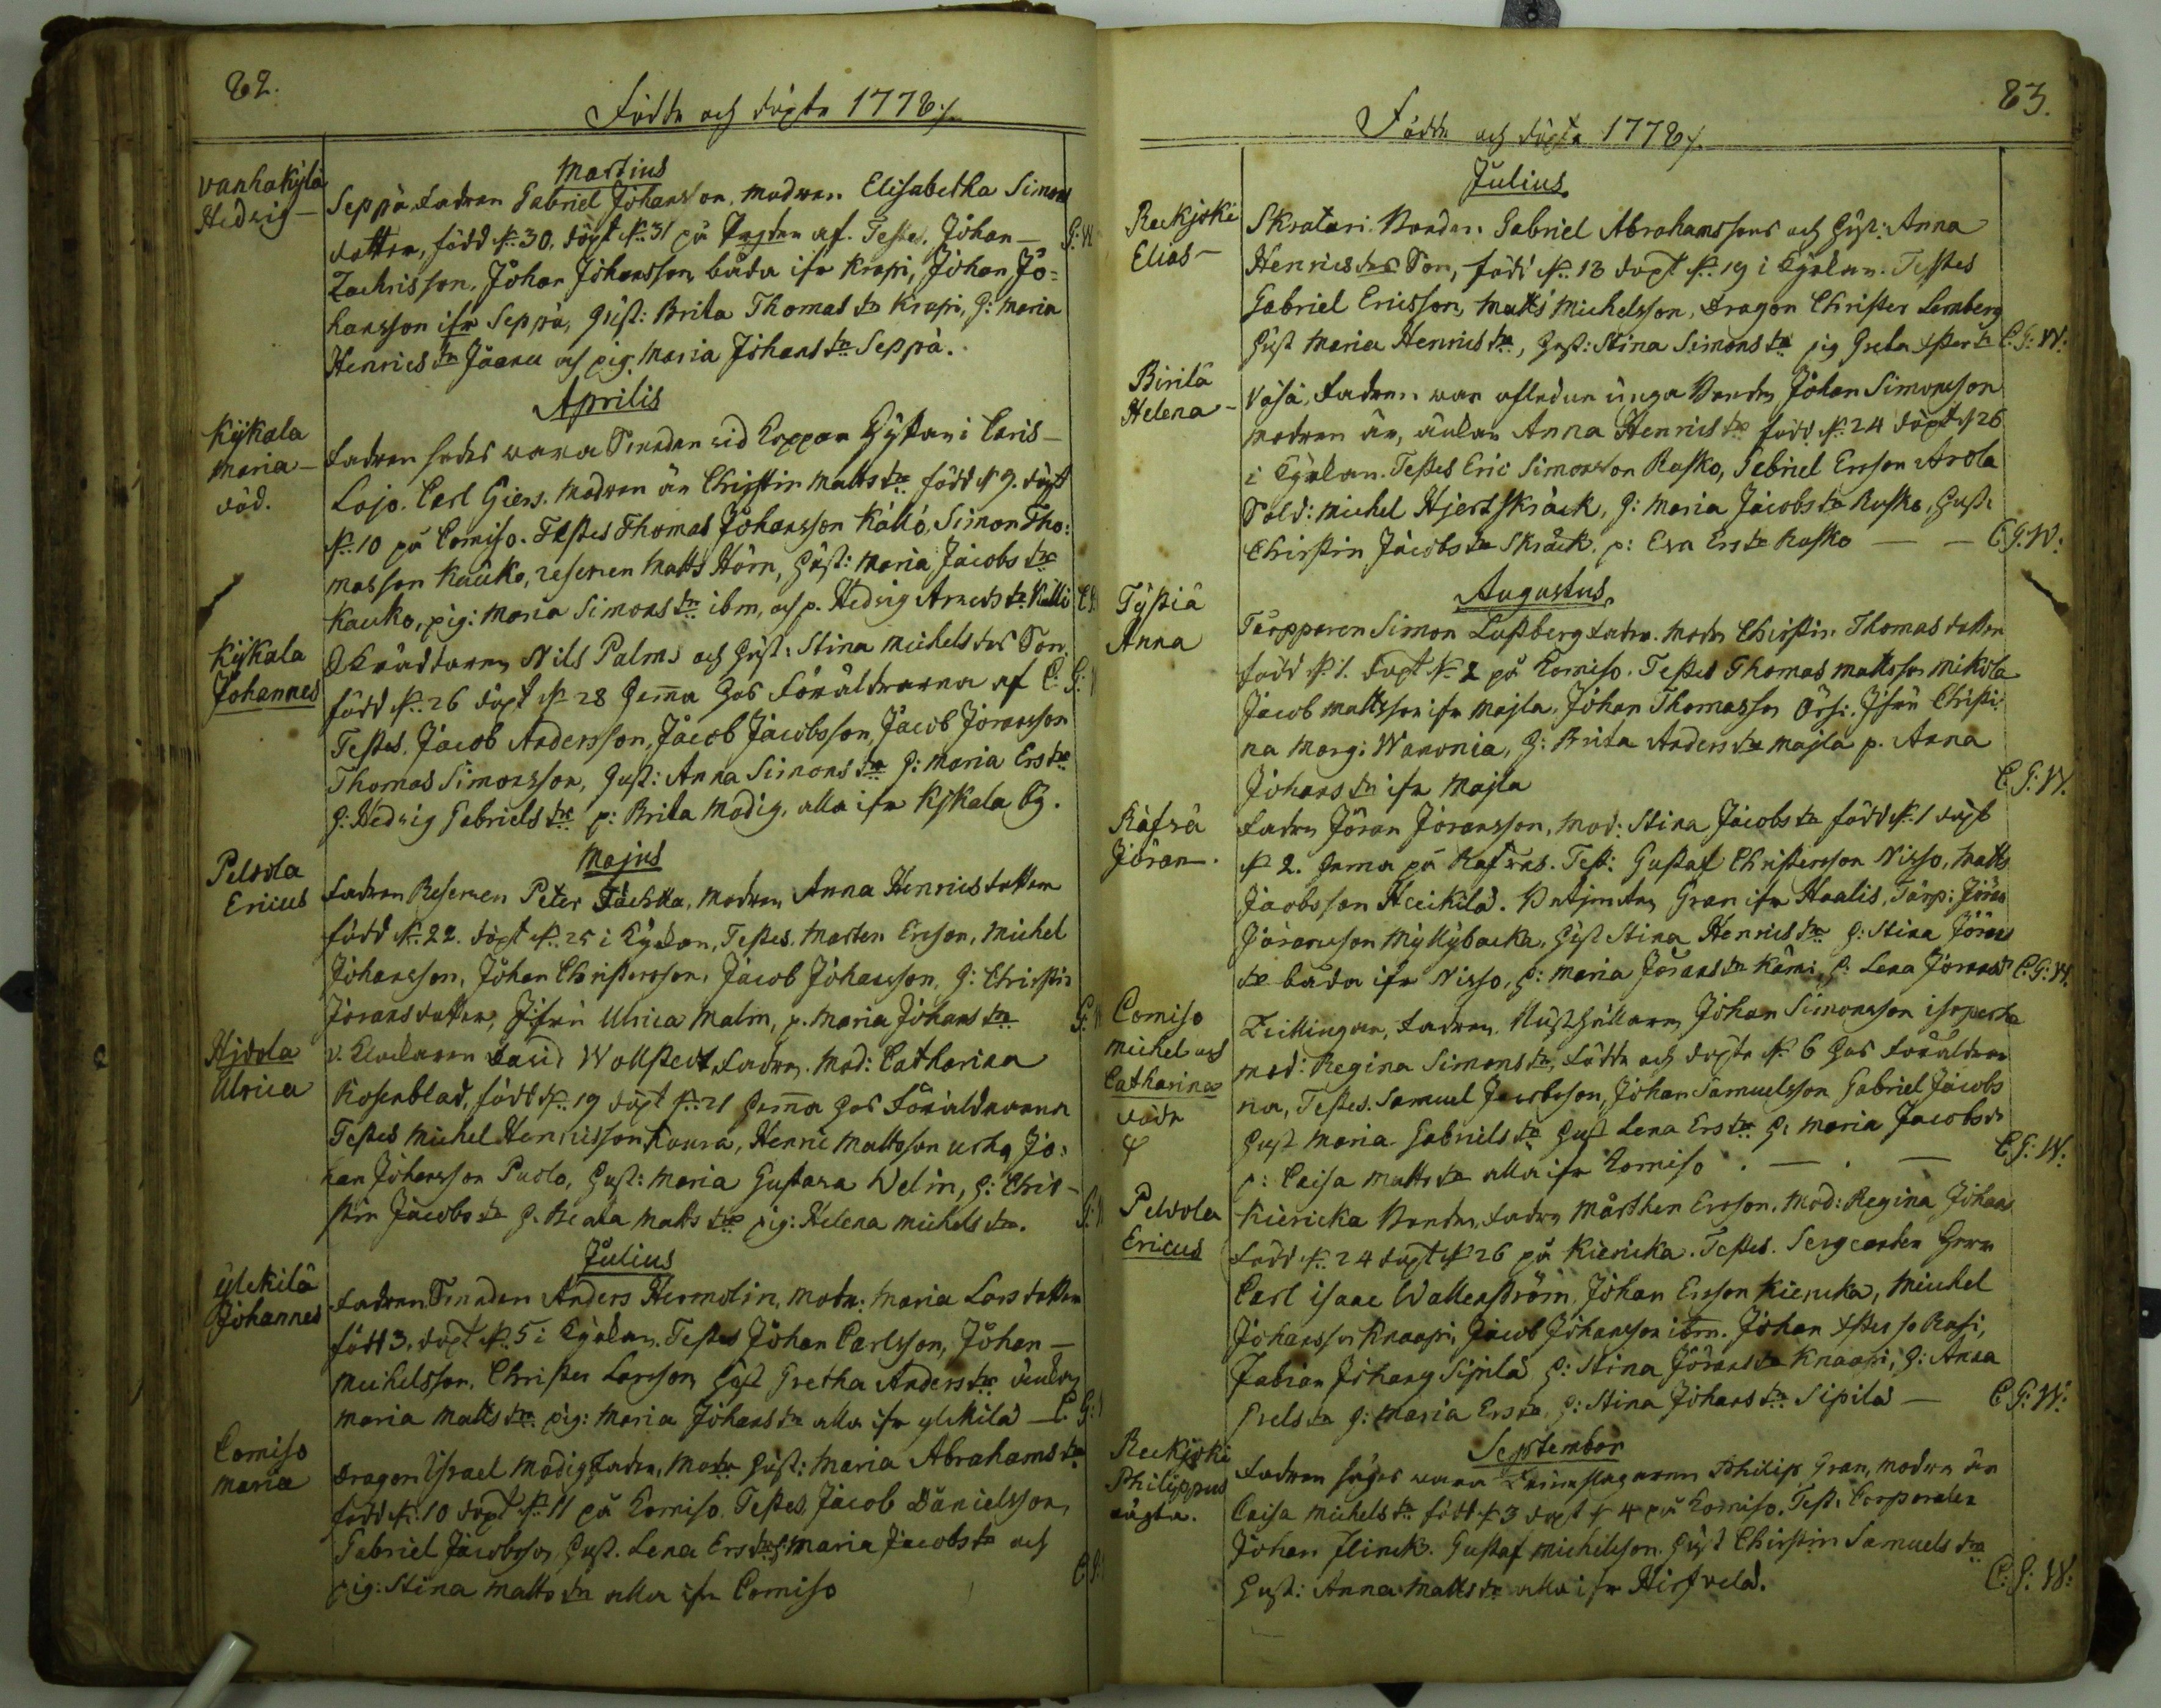 82.
Födde och döpte 1778 /.
Martius
Vanhakylä Seppä, fadren Gabriel Johansson, modren Elisabetha Simons
Hedvig — dotter, född d. 30. döpt d. 31 på af. Testes. Johan —
Zachrisson, Johan Johansson, båda ifr Krapi, Johan Jo=
hansson ifr Seppä, Hust: Brita Thomas dr Krapi, H: Maria
Henrics dr Jaanu och pig. Maria Johans dr Seppä.
Aprilis
Kykala fadren vara Smeden vid Koppar i Caris —
Maria — Lojo. Carl Giers. Modren är Christin Matts dr född d 9. döpt
död. d. 10 på Comiso. Testes Thomas Johansson Källö, Simon Tho:
masson Kauko, reserven Matts Hörn, Hust: Maria Jacobs dr
Kauko, pig: Maria Simons dr ibm, och p. Hedvig Arveds dr Källi
Kykala Skräddaren Nils Palms och Hust: Stina Michels drs Son.
Johannes född d. 26 döpt d. 28 hema hos Föräldrarna af C. G: W
Testes. Jacob Andersson, Jacob Jacobsson, Jacob Joransson
Thomas Simonsson, Hust: Anna Simons dr H: Maria Ers dr
H: Hedvig Gabriels dr p: Brita Modig, alla ifr Kykala by.
Majus
Pelvola fadren Reserven Peter Modren, Anna Henrics dotter
Ericus född d. 22. döpt d. 25 i Kyrkan, Testes. Marten Erson, Michel
Johansson, Johan Christersson, Jacob Johansson, H: Christin
Jörans dotter, Jifru Ulrica Malm, p. Maria Johans dr
Hjvola v. Klockaren David Wollstedt, fadren. Mod: Catharina
Ulrica Rosenblad, född d. 19 döpt d. 21 hema hos Föräldrarna
Testes Michel Henricsson Koura, Henric Mattsson Urha, Jo:
han Johansson Puolo, Hust: Maria Gustava Welin, H: Chris-
stin Jacobs dr H. Beata Matts dr pig: Helena Michels dr.
Julius
Ylikilä fadren Smeden Anders Hermolin, Modr: Maria Lars dotter
Johannes född 3. döpt d. 5 i Kyrkan. Testes Johan Carlsson, Johan —
Michelsson, Christer Larsson, Hust Gretha Anders dr änkan
Maria Matts dr. pig: Maria Johans dr alla ifr Ylikilä — C. G:
Comiso Dragon Israel Modig fadren, Modr Hust: Maria Abrahams dr
Maria född d. 10 döpt d. 11 på Komiso. Testes, Jacob Danielsson,
Gabriel Jacobsson, Hust. Lena Ers dr, Maria Jacobs dr och
pig: Stina Matts dr alla ifr Comiso
83.
Födde och döpte 1778 /.
Julius
Reckjoki Skratari Bonden Gabriel Abrahamssons och Hust: Anna
Elias — Henrics drs Son, född d. 18 döpt d. 19 i Kyrkan. Testes
Gabriel Ericsson, Matts Michelsson, Dragon Christer Lemberg
Hust Maria Henrics dr, Hust: Stina Simons dr pig Greta C. G: W:
Birilä fadren war aflidne unga Bonden Johan Simonsson
Helena — Modren är, änkan Anna Henrics dr född d. 24 döpt d 26
i Kyrkan. Testes Eric Simonsson Rasko, Gabriel Ersson Arola
Sold: Michel Hjertskräck, H: Maria Jacobs dr Rasko, Hust:
Christin Jacobs dr Skräck. p: Eva Ers dr Rasko — — C. G. W:
Augustus
Typiä Torpparen Simon Lustberg fadren. Modr Christin Thomas dotter
Anna född d. 1. döpt d. 2 på Komiso. Testes Thomas Mattsson Mikola
Jacob Mattsson ifr Majla, Johan Thomasson Örsi, Jfru Christi:
na Marg: Wanonia, H: Brita Anders dr Majla p. Anna
Johans dr ifr Majla C. G: W.
Räfsä fadren Jöran Joransson, Mod: Stina Jacobs dr född d. 1 döpt
Jöran. d 2. hema på Rafsäs. Test: Gustaf Christersson Nisso, Matts
Jacobsson Heickilä. Gran ifr Haalis, Torp: Jöran
Joransson Myllybacka, Hust Stina Henrics dr H: Stina Jörans
dr båda ifr Nisso, p: Maria Jörans dr Kärni, p: Lena Jorans dr C. G: W.
Comiso Tvillingar, fadren Johan Simonsson
Michel och Mod: Regina Simons dr, födde och döpte d. 6 hos Föräldrar
Catharina na, Testes. Samuel Jacobsson, Johan Samuelsson Gabriel Jacobs
döde Hust Maria Gabriels dr Hust Lena Ers dr H: Maria Jacobs dr
p: Caisa Matts dr alla ifr Komiso . — . — C. G: W:
Pelvola Kiericka Bonden, fadren Mårthen Ersson, Mod: Regina Johans
Ericus född d. 24 döpt d 26 på Kiericka. Testes. Sergeanten Herr
Carl Isaac Wallenström, Johan Ersson Kiericka, Michel
Johansson Knaapi, Jacob Johansson ibm. Johan Rosi,
Fabian Johans Sipilä H: Stina Jörans dr Knaapi, H: Anna
dr H: Maria Ers dr, H: Stina Johans dr Sipilä — C G: W:
September
Reckjoki fadren säges vara Philip Gran, Modren är
Philippus Caisa Michels dr född d 3 döpt d 4 på Komiso. Test: Corporalen
oägta. Johan Flinck. Gustaf Michelsson. Hust Christin Samuels dr
Hust: Anna Matts dr alla ifr Hirfvelä. C: G: W: